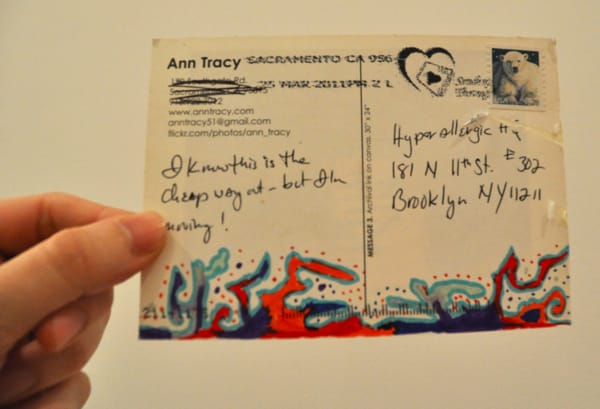 Ann Tracy
SACRAMENTO CA 956
25 MAR 2011 PM 2 L
www.anntracy.com
anntracy51@gmail.com
flickr.com/photos/ann_tracy
I know this is the
cheap way out - but I'm
moving!
MESSAGE 3. Archival ink on canvas. 30" x 24"
Hyperallergic HQ
181 N 11th St. #302
Brooklyn NY 11211